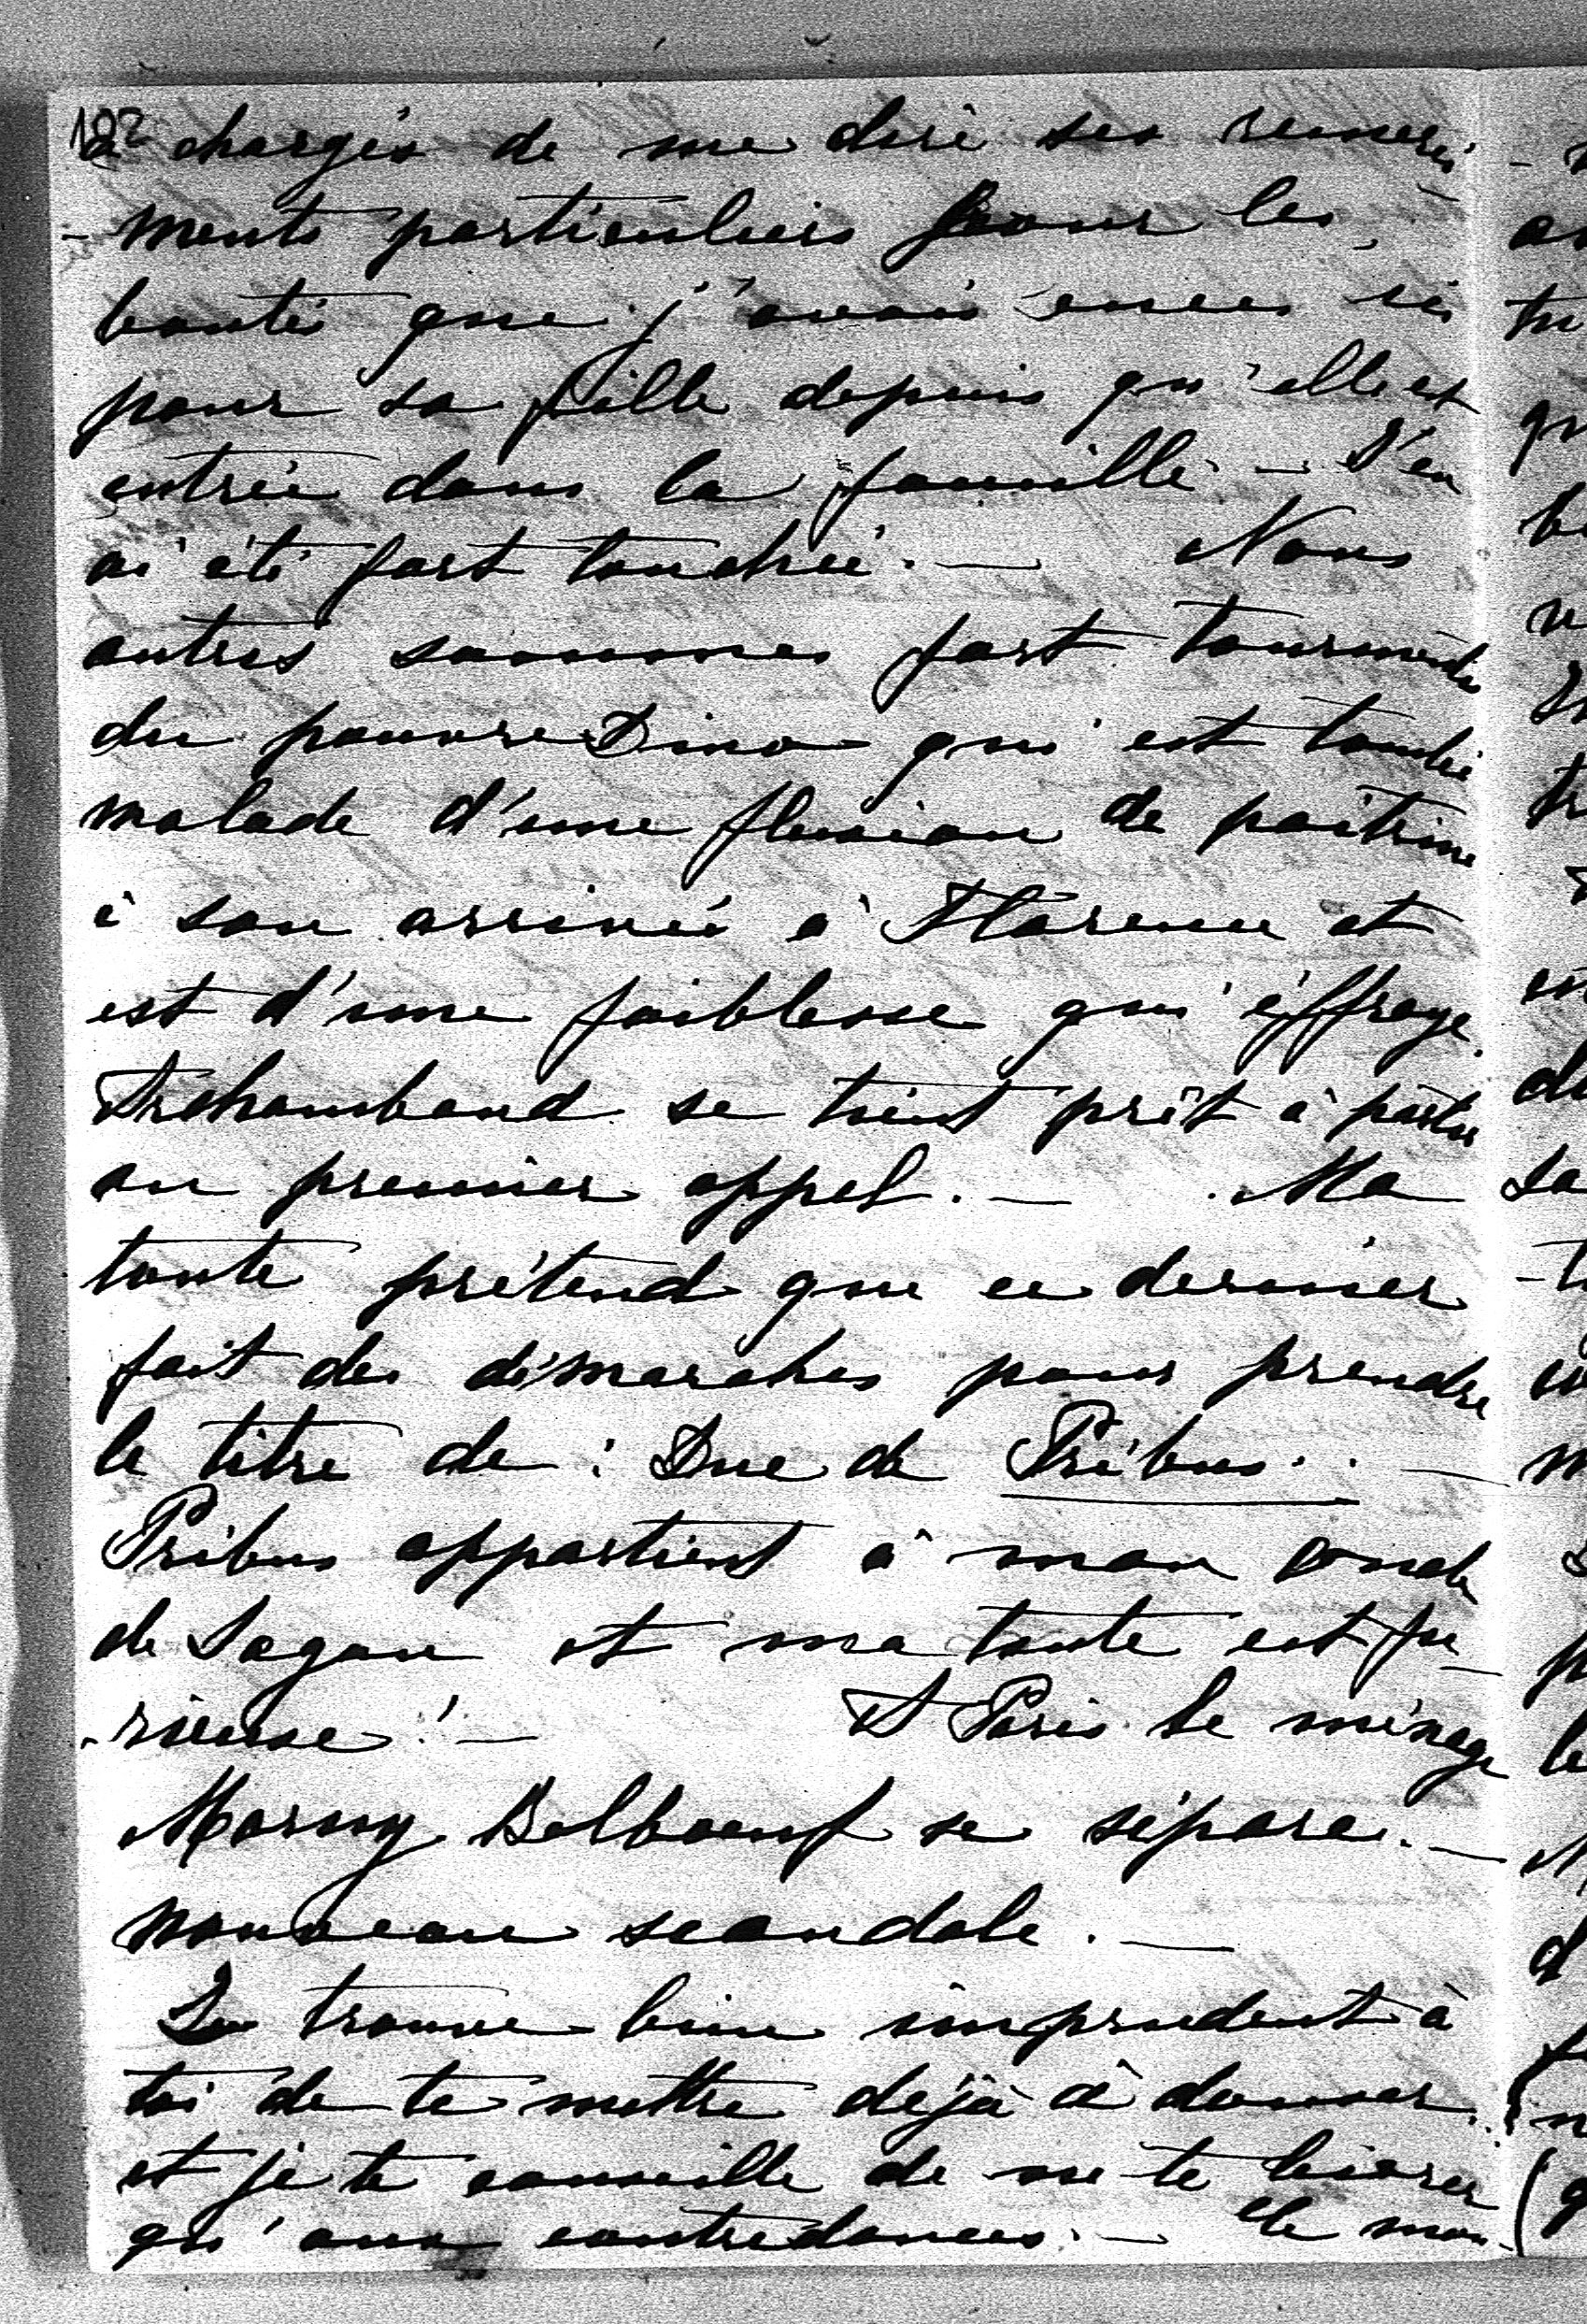 182
a chargés de me dire ses remerci-
-ments particuliers pour les
bontés que j'avais eues ici
pour sa fille depuis qu'elle est
entrée dans la famille. – J'en
ai été fort touchée. — Nous
autres sommes fort tourmentés
du pauvre Dino qui est tombé
malade d'une fluxion de poitrine
à son arrivée à Florence et
est d'une faiblesse qui éffraye.
Archambaud se tient prêt à partir
au premier appel. — Ma
tante prétend que ce dernier
fait des démarches pour prendre
le titre de : Duc de Pribus. . —
Pribus appartient à mon oncle
de Sagan et ma tante est fu-
-rieuse ! — A Paris le ménage
Morny Belboeuf se sépare. —
nouveau scandale. —
Je trouve bien imprudent à
toi de te mettre déjà à danser.
et je te conseille de ne te livrer
qu'aux contredances. — Le mou-